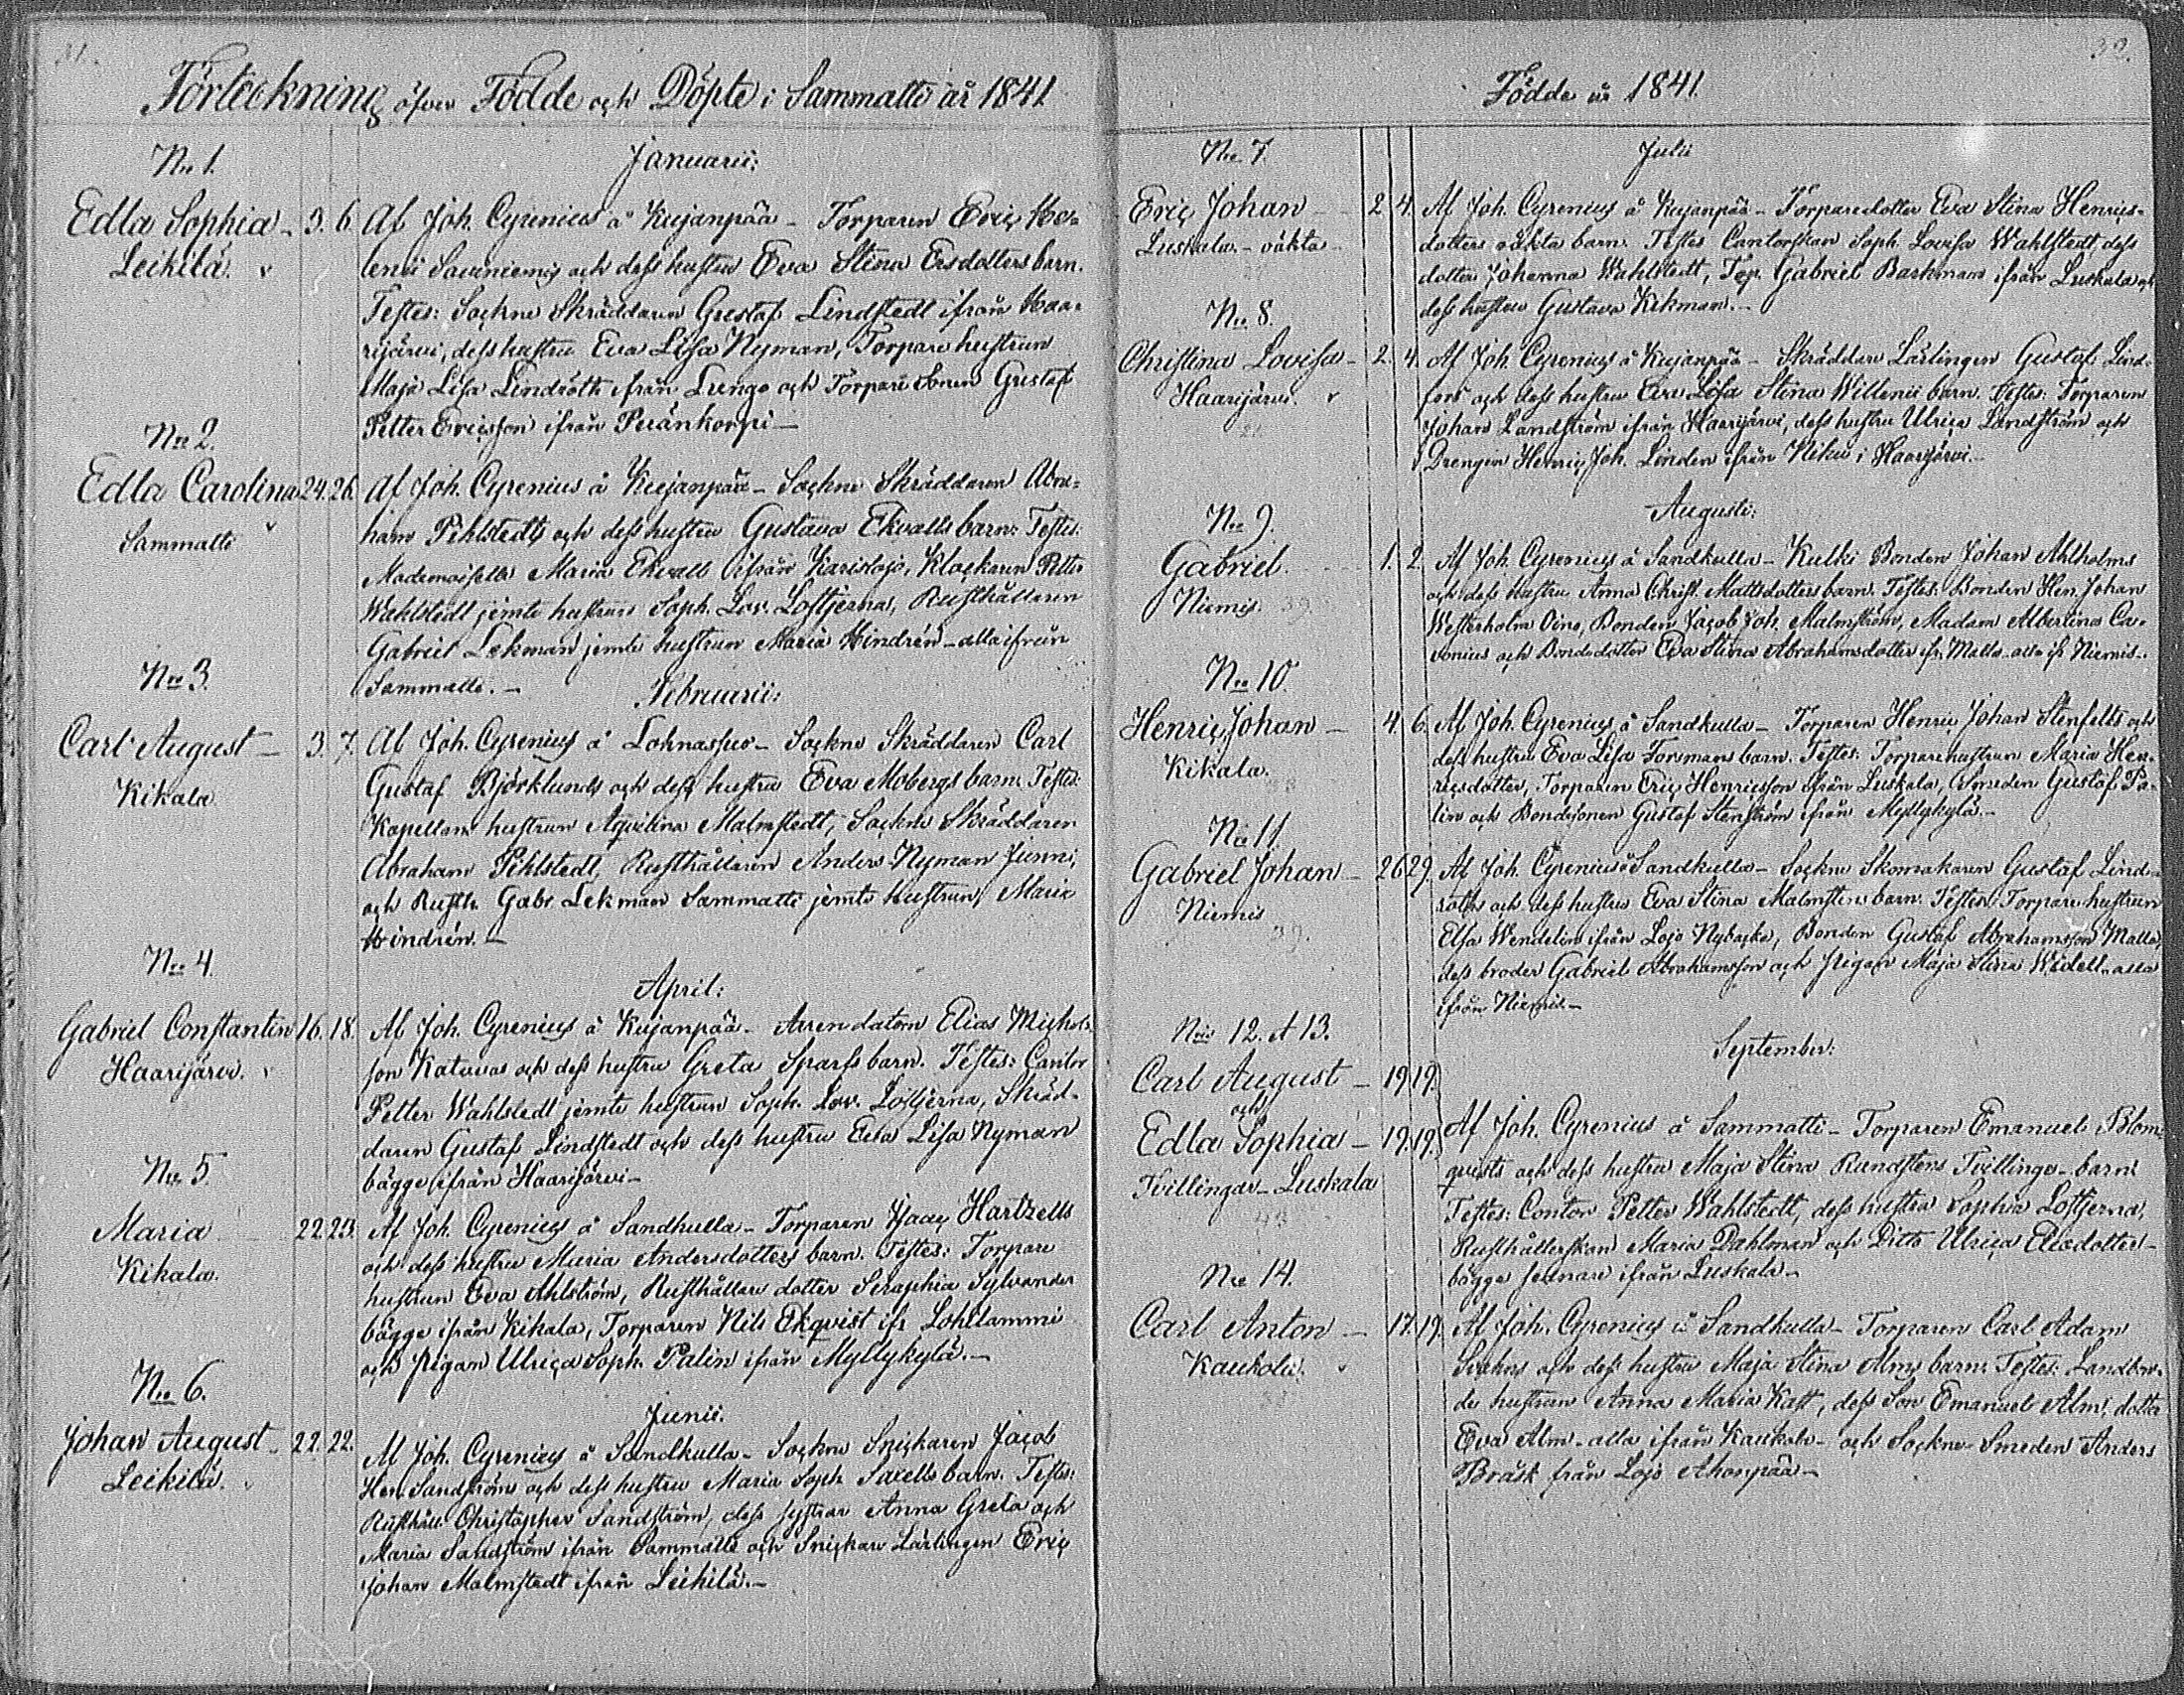 31.
Förteckning öfver Födde och Döpte i Sammatti år 1841
No 1.
Januarii:
Edla Sophia - 3. 6. Af Joh. Cyrenius å Kujanpää - Torparen Eriç He-
Leikilä. lenii Sauniemis och dess hustru Eva Stina Ersdotters barn.
Testes: Soçkne Skräddaren Gustaf Lindstedt ifrån Haa-
rijärvi, dess hustru Eva Lisa Nyman, Torpare hustrun
Maja Lisa Lindroth ifrån Lungo och Torpare Sonen Gustaf
Petter Ericsson ifrån Peränkorpi -
No 2.
Edla Carolina 24. 26. Af Joh. Cyrenius å Kujanpää - Soçkne Skräddaren Abra-
Sammatti ham Pihlstedts och dess hustru Gustava Ekvalls barn: Testes:
Mademoiselle Maria Ekvall ifrån Karislojo, Kloçkaren Petter
Wahlstedt jemte hustrun Soph. Lov. Löfstjerna, Rusthållaren
Gabriel Lekman jemte hustrun Maria Hindrén - alla ifrån
Sammatti. -
No 3.
Februarii:
Carl August - 3. 7. Af Joh. Cyrenius å Lohnassuo - Soçkne Skräddaren Carl
Kikala Gustaf Björklunds och dess hustru Eva Mobergs barn. Testes:
Kapellans hustrun Aqvilina Malmstedt, Soçkne Skräddaren
Abraham Pihlstedt, Rusthållaren Anders Nyman Junni,
och Rusth. Gabr. Lekman Sammatti jemte Hustrun, Maria
Hindrén. -
No 4.
April:
Gabriel Constantin 16. 18. Af Joh. Cyrenius å Kujanpää - Arrendatorn Elias Michels-
Haarijärvi. son Katavas och dess hustru Greta Sparfs barn. Testes: Cantor
Petter Wahlstedt jemte hustrun Soph. Lov. Löfstjerna, Skräd-
daren Gustaf Lindstedt och dess hustru Eva Lisa Nyman
bägge ifrån Haarijärvi -
No 5.
Maria 22. 23. Af Joh. Cyrenius å Sandkulla - Torparen Isaaç Hartzells
Kikala. och dess hustru Maria Andersdotters barn. Testes: Torpare
hustrun Eva Ahlström, Rusthållare dotter Seraphia Sylvander
bägge ifrån Kikala, Torparen Nils Ekqvist ifr. Lohilammi
och Pigan Ulriça Soph. Palin ifrån Myllykylä. -
No 6.
Junii.
Johan August - 22. 22. Af Joh. Cyrenius å Sandkulla - Soçkne Sniçkaren Jacob
Leikilä. Hen. Sandströms och dess hustru Maria Soph. Saxells barn. Testes:
Rusthåll. Christopher Sandström, dess systrar Anna Greta och
Maria Sandström ifrån Sammatti och Sniçkare Lärlingen Eriç
Johan Malmstedt ifrån Leikilä. -
32.
Födde år 1841.
No 7.
Julii
Eriç Johan - 2. 4. Af Joh. Cyrenius å Kujanpää - Torparedotter Eva Stina Henriçs-
Luskala - oäkta - dotters oäkta barn. Testes Cantorskan Soph. Lovisa Wahlstedt, dess
dotter Johanna Wahlstedt, Torp. Gabriel Barkman ifrån Luskala och
dess hustru Gustava Kekman. -
No 8.
Christina Lovisa - 2. 4. Af Joh. Cyrenius å Kujanpää - Skräddare Lärlingen Gustaf Lind-
Haarijärvi. fors och dess hustru Eva Lisa Stina Willenii barn. Testes: Torparen
Johan Landström ifrån Haarijärvi, dess hustru Ulriça Landström och
Drengen Henriç Joh. Linden ifrån Niku i Haarijärvi. -
No 9.
Augusti:
Gabriel. 1. 2. Af Joh. Cyrenius å Sandkulla - Kulki Bonden Johan Ahlholms
Niemis. 39. och dess hustru Anna Christ. Mattsdotters barn. Testes: Bonden Hen. Johan
Westerholm Oino, Bonden Jaçob Joh. Malmström, Madam Albertina Ca-
vonius och Bondedotter Eva Stina Abrahamsdotter ifr. Malla - alla ifr. Niemis. -
No 10.
Henriç Johan - 4. 6. Af Joh. Cyrenius å Sandkulla - Torparen Henriç Johan Stenfelts och
Kikala. dess hustru Eva Lisa Forsmans barn. Testes: Torparehustrun Maria Hen-
38 riçsdotter, Torparen Eriç Henricsson ifrån Luskala, Smeden Gustaf Pa-
lin och Bondesonen Gustaf Stenström ifrån Myllykylä. -
No 11.
Gabriel Johan - 26 29. Af Joh. Cyrenius å Sandkulla - Soçkne Skomakaren Gustaf Lind-
Niemis roths och dess hustru Eva Stina Malmstens barn. Testes Torpare hustrun
39. Elsa Wendelin ifrån Lojo Nybaçka, Bonden Gustaf Abrahamsson Malla,
dess broder Gabriel Abrahamsson och Pigan Maja Stina Widell - alla
ifrån Niemis -
Nris 12. et 13.
September:
Carl August - 19. 19.
och
Edla Sophia - 19. 19. Af Joh. Cyrenius å Sammatti - Torparen Emanuel Blom-
Tvillingar - Luskala qvists och dess hustru Maja Stina Rundstens Tvillinge-barn.
43 Testes: Cantor Petter Wahlstedt, dess hustru Sophia Löfstjerna,
Rusthållerskan Maria Dahlman och Ditto Ulriça Elisdotter -
bägge sednare ifrån Luskala -
No 14.
Carl Anton - 17. 19. Af Joh. Cyrenius å Sandkulla - Torparen Carl Adam
Kaukola. och dess hustru Maja Stina Alms barn. Testes: Landbon-
de hustrun Anna Maria Katt, dess Son Emanuel Alm, dotter
Eva Alm - alla ifrån Kaukola - och Soçkne-Smeden Anders
Bräsk från Lojo Ahonpää -